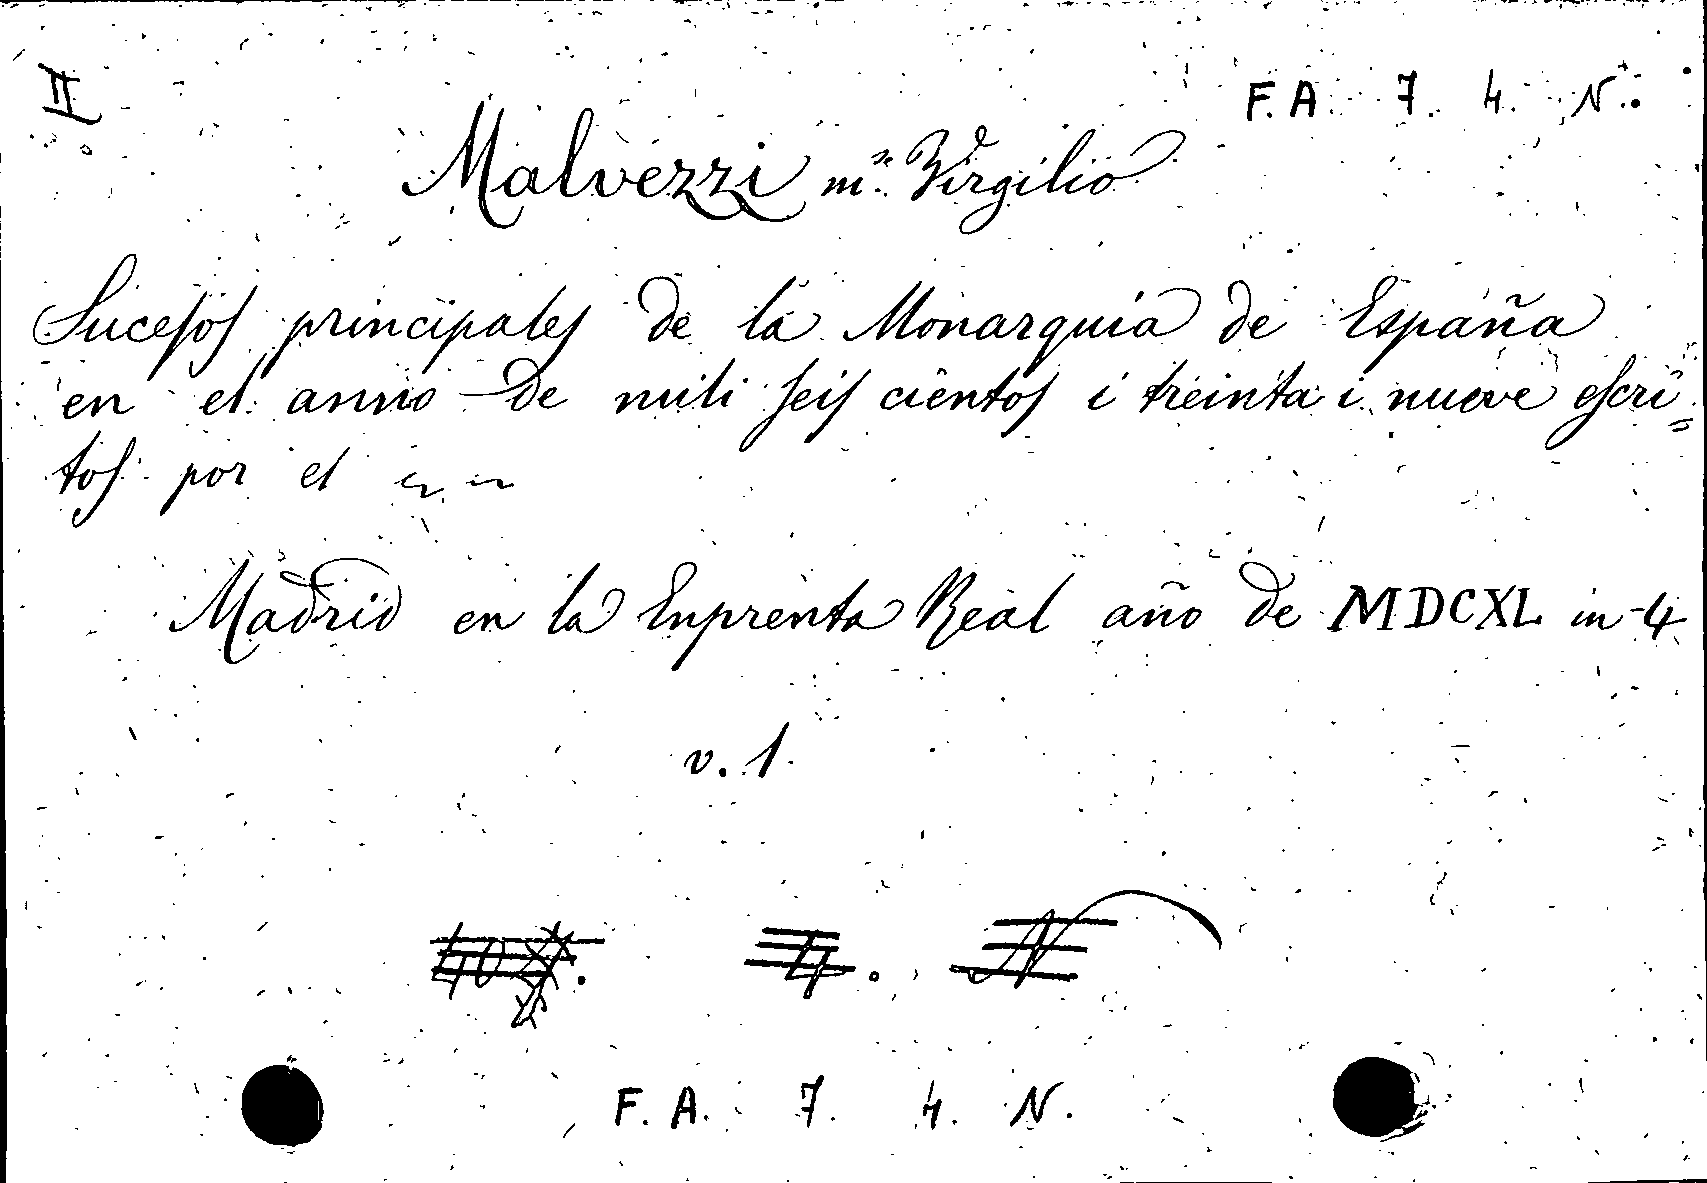 II
F. A. 7. 4. N.
Malvezzi m.se Virgilio
Sucesos principales de la Monarquia de España
en el anno de mili seis cientos i treinta i nueve escri=
tos por el
Madrid en la Enprenta Real año de MDCXL in-4
v. 1.
4. N
F. A. 7. 4. N.